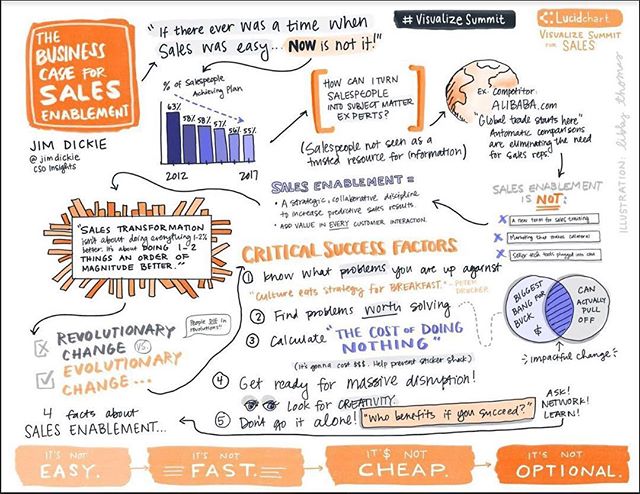 THE
BUSINESS
CASE FOR
SALES
ENABLEMENT
JIM DICKIE
@jimdickie
CSO Insights
"If there ever was a time when
Sales was easy... NOW is not it!"
# Visualize Summit
Lucidchart
VISUALIZE SUMMIT
FOR SALES
ILLUSTRATION: libby thomas
% of Salespeople
Achieving Plan
63%
58%
58%
57%
56%
55%
2012
2017
HOW CAN I TURN
SALESPEOPLE
INTO SUBJECT MATTER
EXPERTS?
(Salespeople not seen as a
trusted resource for information)
Ex. Competitor:
ALIBABA.com
"Global trade starts here"
Automatic comparisons
are eliminating the need
for sales reps.
SALES ENABLEMENT
IS NOT:
X A new term for sales training
X Marketing that makes collateral
X Seller tech tools plugged into CRM
SALES ENABLEMENT =
• A strategic, collaborative discipline
to increase predictive sales results.
• ADD VALUE IN EVERY CUSTOMER INTERACTION.
"SALES TRANSFORMATION
isn't about doing everything 1-2%
better. It's about DOING 1-2
THINGS AN ORDER OF
MAGNITUDE BETTER."
CRITICAL SUCCESS FACTORS
1 Know what problems you are up against
"Culture eats strategy for BREAKFAST." - PETER
DRUCKER
2 Find problems worth solving
3 Calculate "THE COST OF DOING
NOTHING"
(It's gonna cost $$$. Help prevent sticker shock)
4 Get ready for massive disruption!
Look for CREATIVITY.
5 Don't go it alone! "Who benefits if you succeed?"
ASK!
NETWORK!
LEARN!
BIGGEST
BANG FOR
BUCK
$
CAN
ACTUALLY
PULL
OFF
impactful change!
REVOLUTIONARY
CHANGE VS.
People DIE in
revolutions"
EVOLUTIONARY
CHANGE...
4 facts about
SALES ENABLEMENT...
IT'S NOT
EASY.
IT'S NOT
FAST.
IT'$ NOT
CHEAP.
IT'S NOT
OPTIONAL.